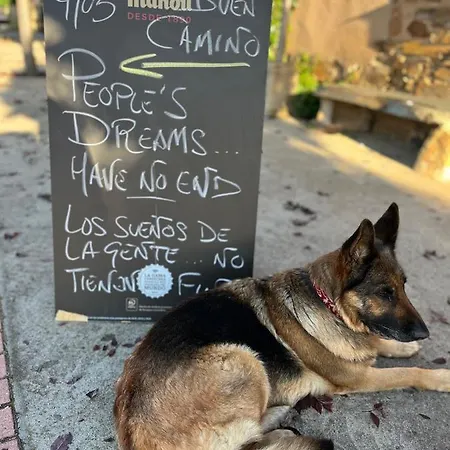 9/05
BUEN
DESDE 1890
CAMINO
PEOPLE'S
DREAMS...
HAVE NO END
LOS SUEÑOS DE
LA GENTE... NO
TIENEN FI